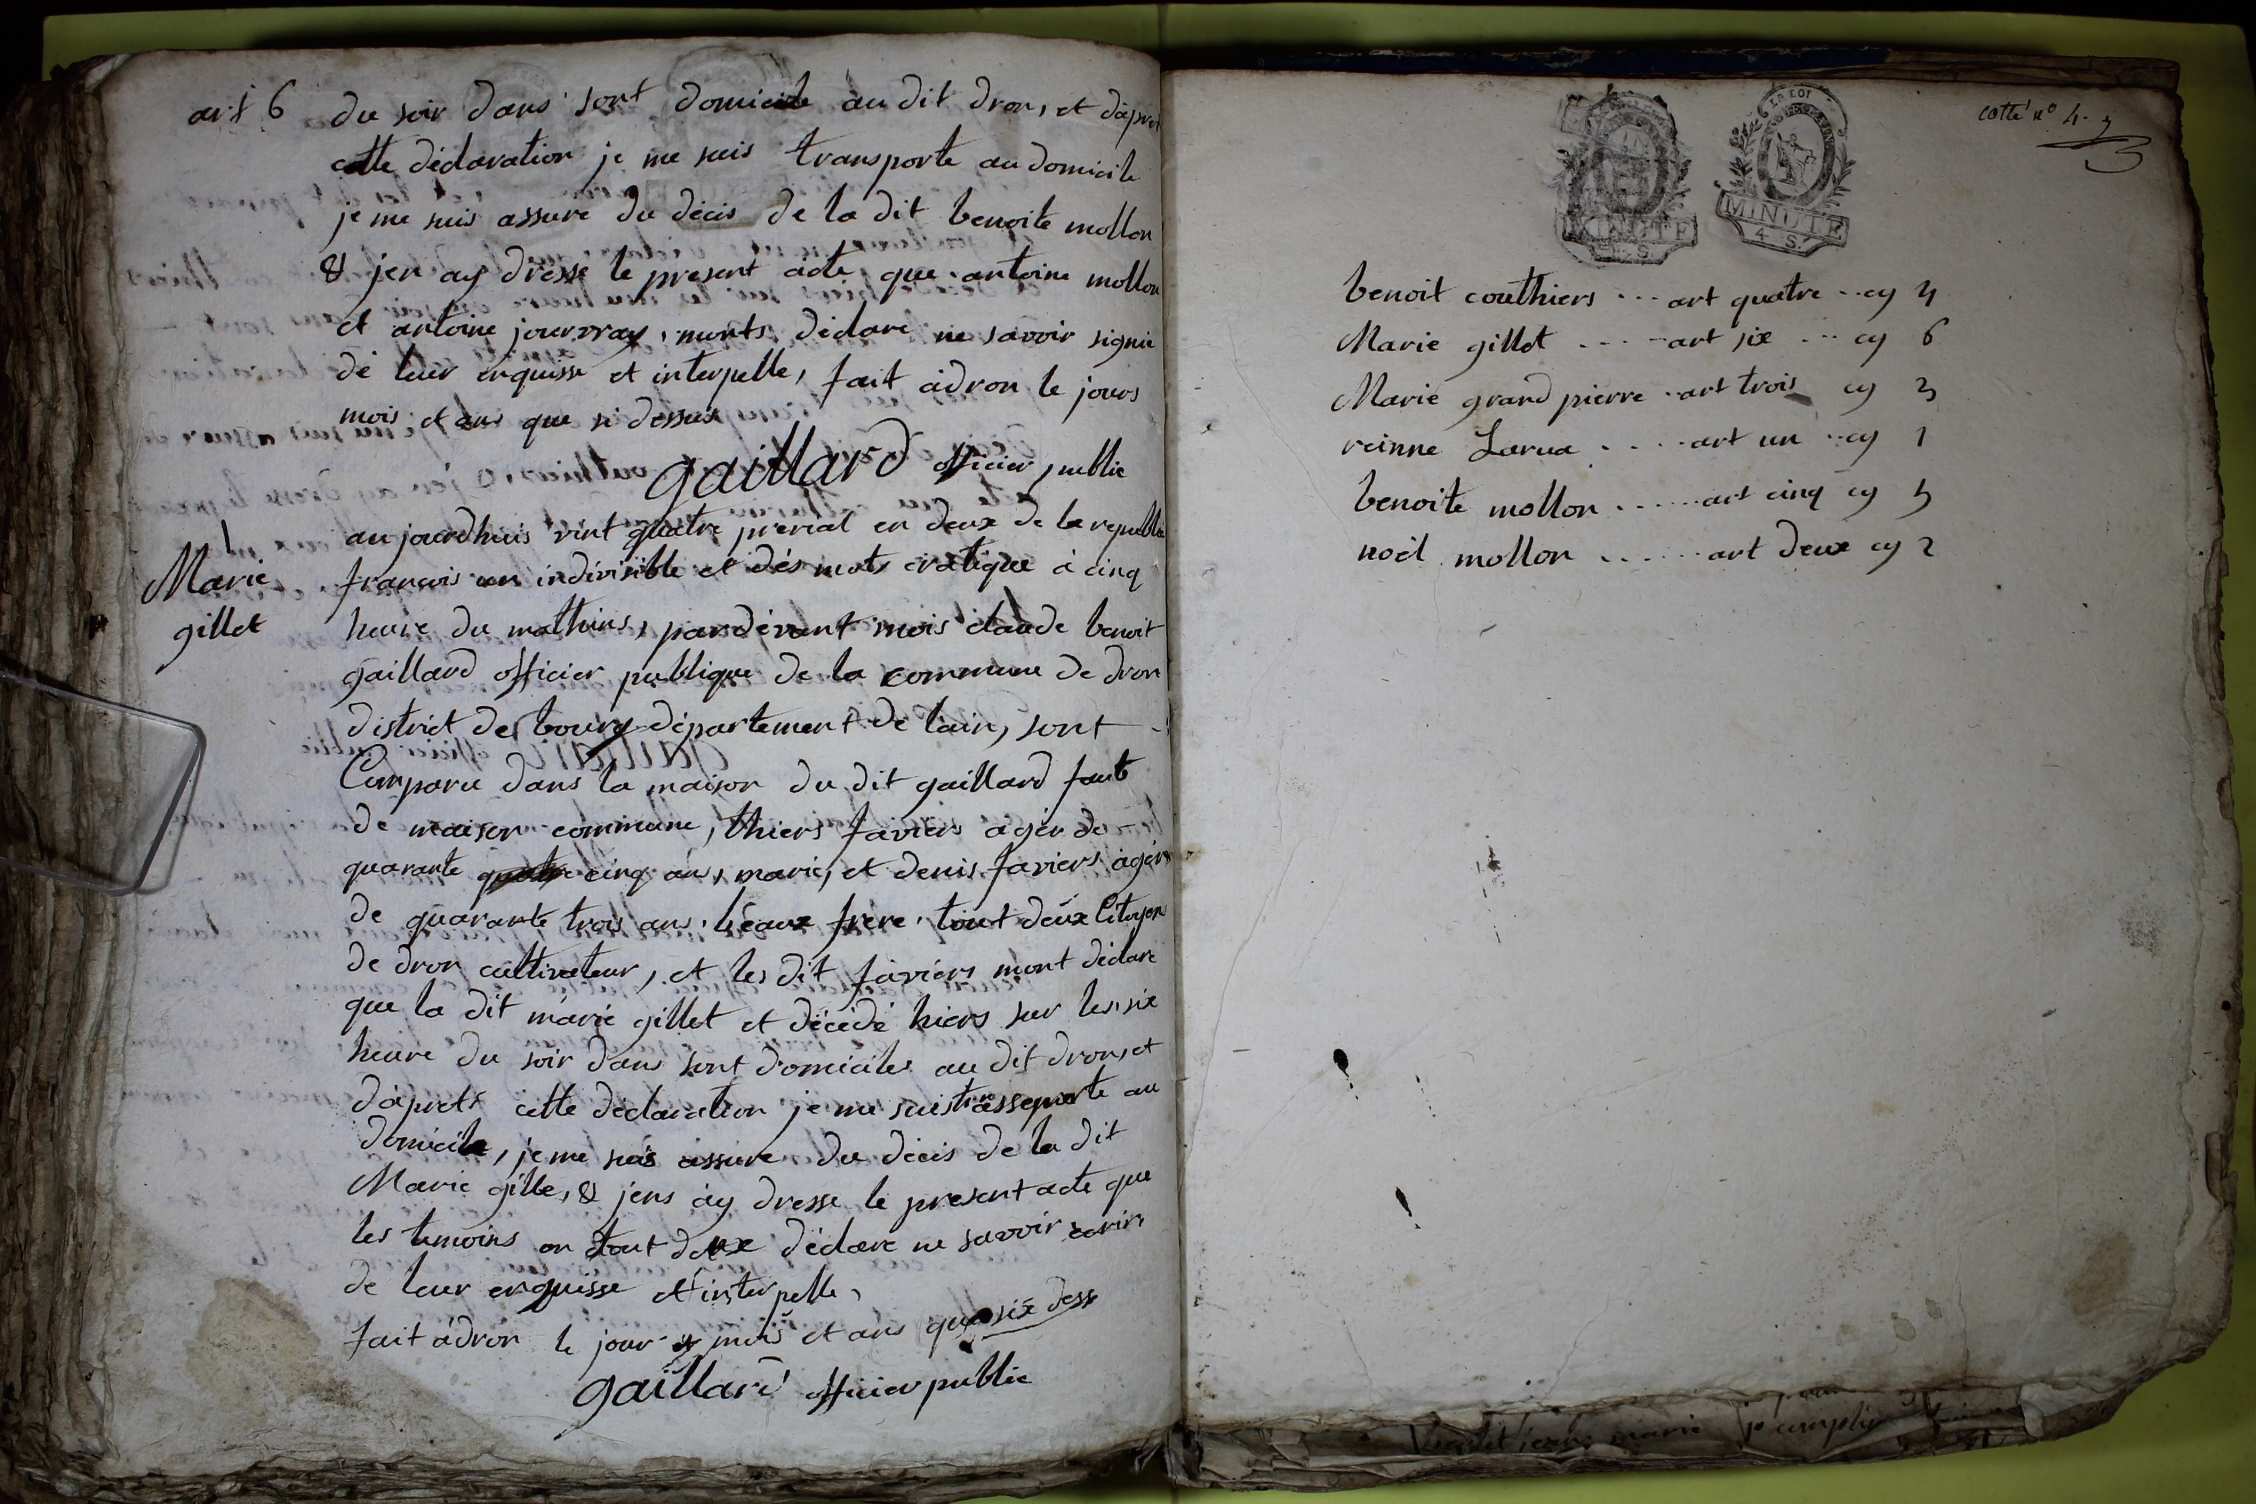 art 6
du soir dans sont domicile au dit dron, et daprer
cette déclaration je me suis transporte au domicile
je me suis assure du décis de la dit benoite mollon
& jen ay dressé le present acte que antoine mollon
et antoine jourvray, monts déclare ne savoir signie
dé leur enquisse et interpelle, fait adron le jours
mois et ans que si dessus
gaillard officier public
Marie
gillet
aujourdhuis vint quatre prerial en deux de la republi
francois un indivisible et dés mots cratique a cinq
heure du mathins, pardévant mois claude benoit
gaillard officier publique de la commune de dron
district de bourg département de lain, sont
Comparu dans la maison du dit gaillard faute
de maison commune, thiers faviers agér de
quarante cinq ans, marie, et denis faviers agér
de quarante trois ans, béaux frere, tout deux Citoyen
de dron cultivateur, et les dit faviérs mont déclare
que la dit marie gillet et décédé hiers sur les six
heure du soir dans sont domicile au dit dron, et
daprets cette déclaration je me suis trassporte au
domicile, je me suis assure du décis de la dit
Marie gille, & jens ay dresse le present acte que
les temoins on tout deux déclare ne savoir écrire
de leur enquisse et interpelle,
fait adron le jour mois et ans que six dess
gaillard officier public
cotté no 4.
LA LOI
MINUTE
4 S
MINUTE
4 S
benoit couthiers ... art quatre .. cy 4
Marie gillet .... art six ... cy 6
Marie grand pierre .. art trois cy 3
reinne Larua .... art un .. cy 1
benoite mollon ...... art cinq cy 5
noèl mollon ...... art deux cy 2